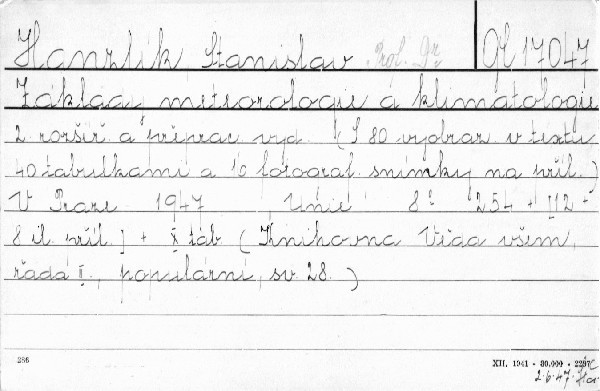 Hanzlík Stanislav Prof. Dr GH 17047
Základy meteorologie a klimatologie
2. rozšíř. a přeprac. vyd. (S 80 vyobraz. v textu
40 tabulkami a 10 fotograf. snímky na příl.)
V Praze 1947 Unie 8° 254 + [12 -
8 il. příl.] + X tab. (Knihovna Věda všem,
řada I., populární, sv. 28.)
286 XII. 1941 - 80.000 - 2297
2.6.47.